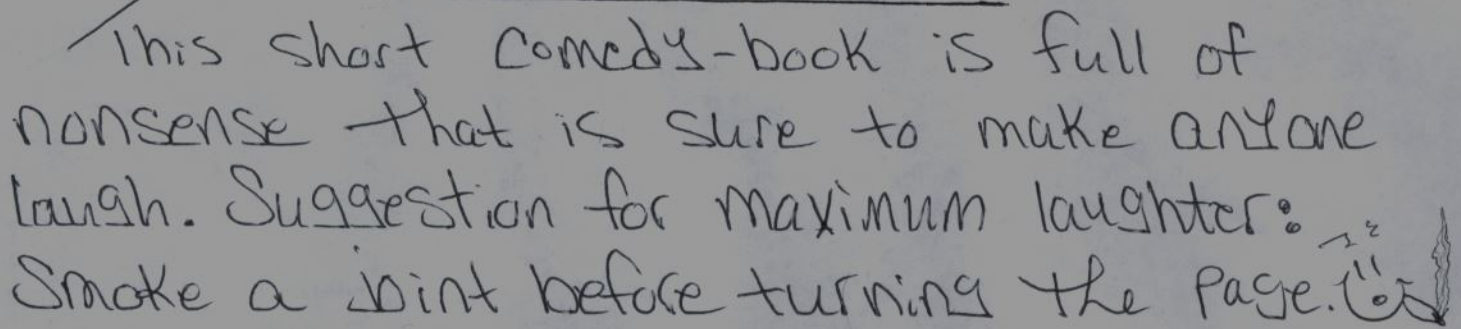 This short Comedy-book is full of
nonsense that is sure to make anyone
laugh. Suggestion for maximum laughter:
Smoke a joint before turning the page.